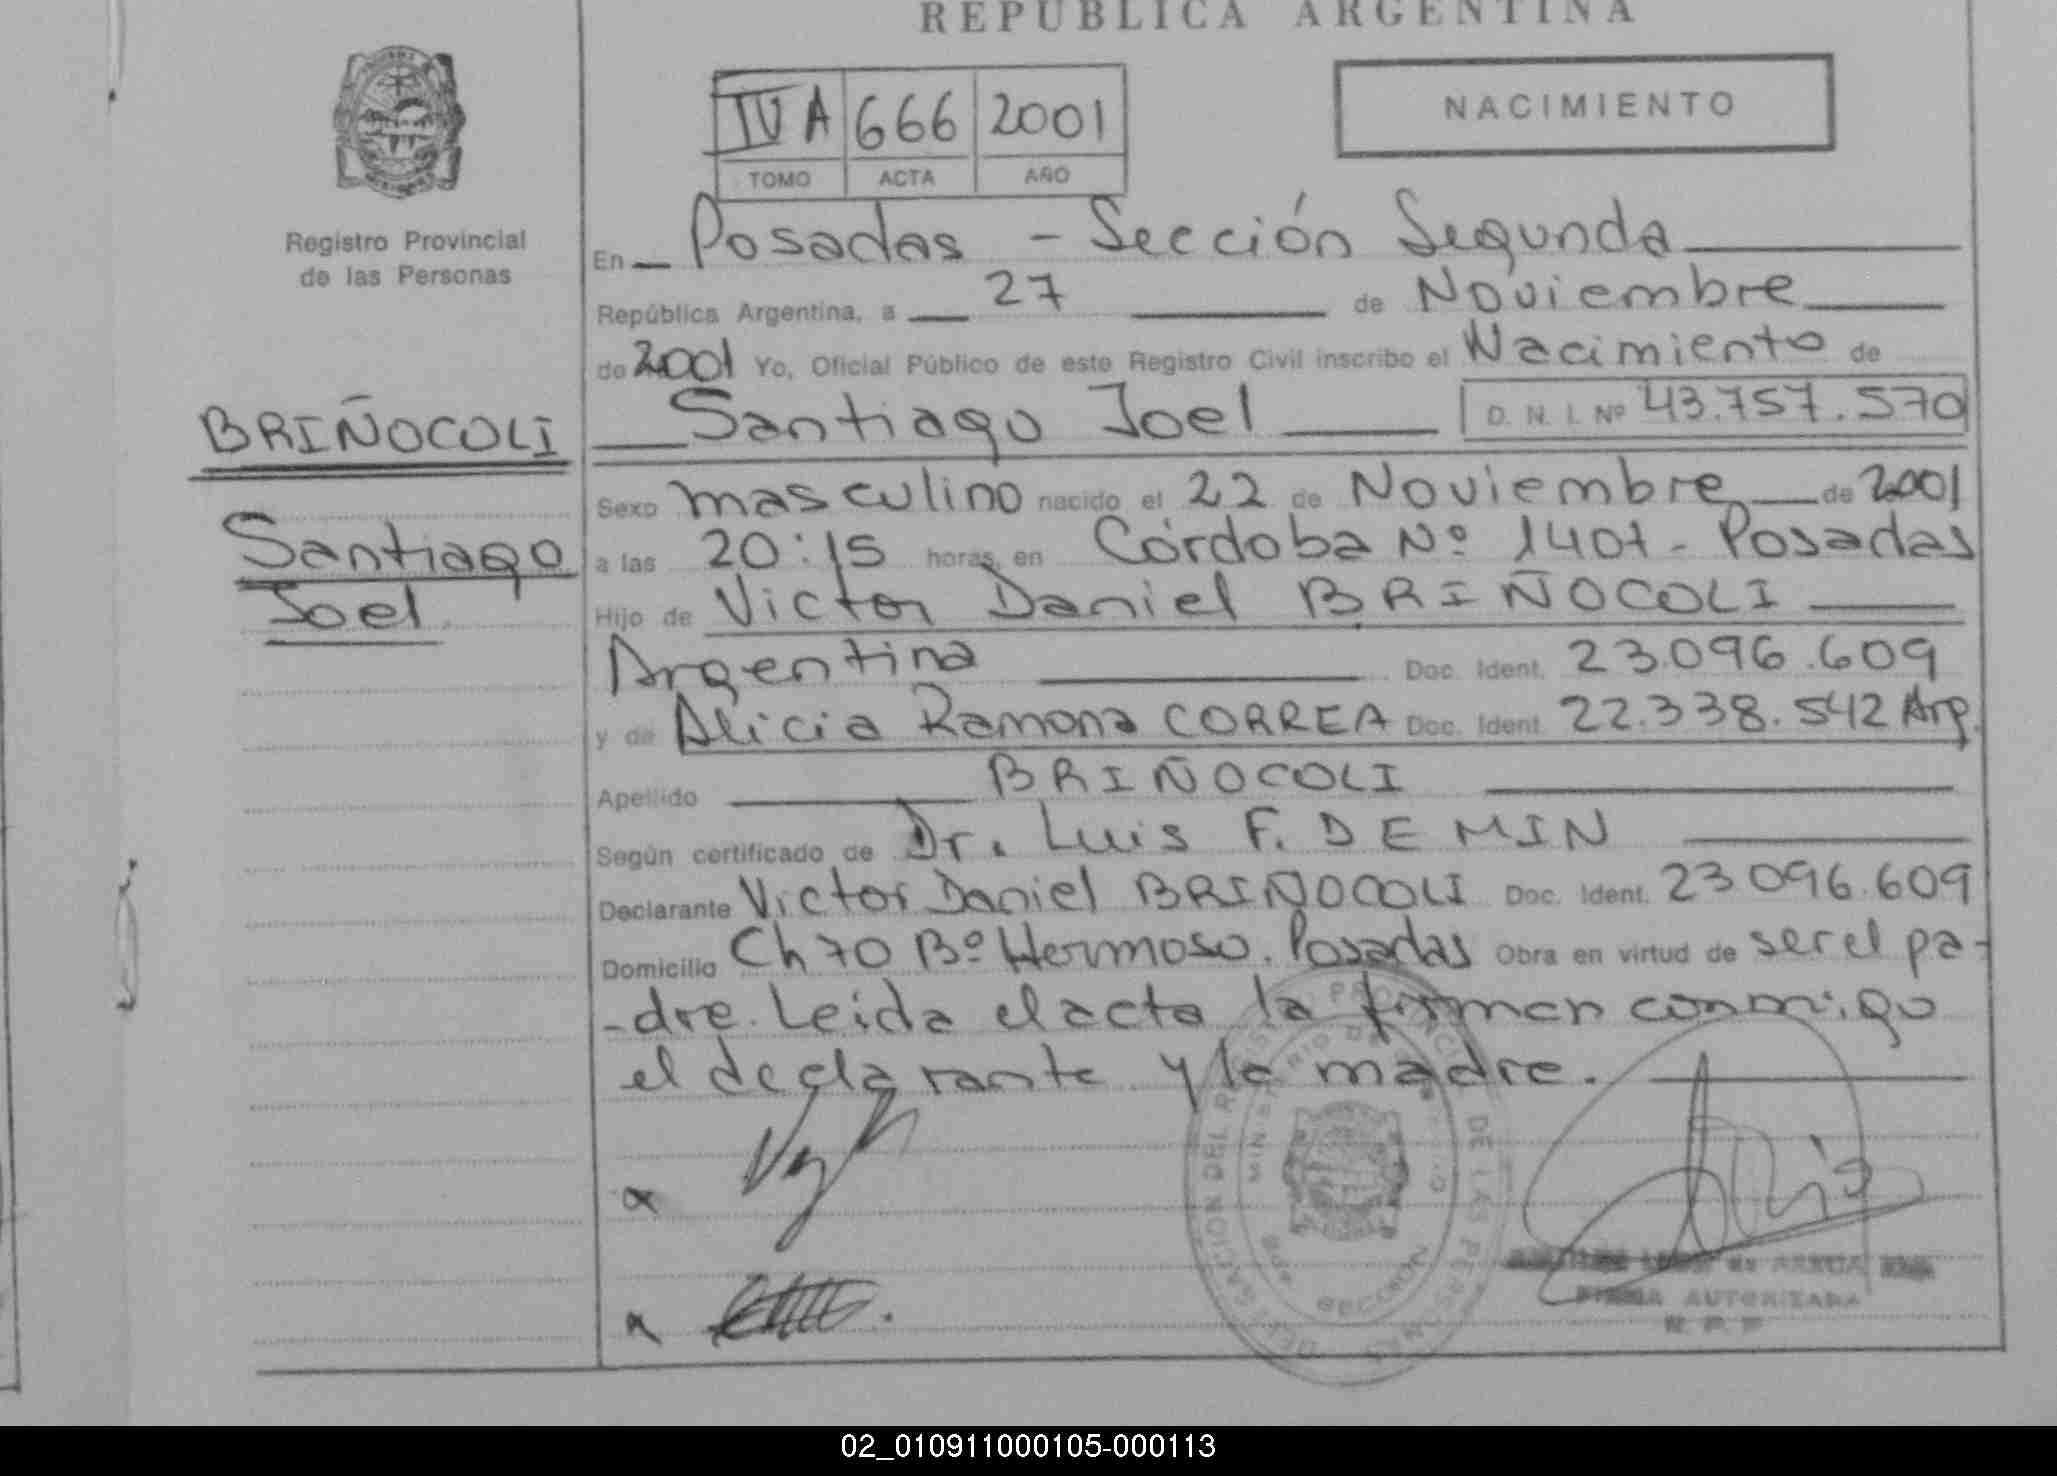 REPUBLICA ARGENTINA
IV A 666 2001
TOMO ACTA AÑO
NACIMIENTO
Registro Provincial
de las Personas
En Posadas - Sección Segunda
República Argentina, a 27 de Noviembre
de 2001 Yo, Oficial Público de este Registro Civil inscribo el Nacimiento de
Santiago Joel D. N. I. Nº 43.757.570
BRIÑOCOLI
Santiago
Joel.
Sexo masculino nacido el 22 de Noviembre de 2001
a las 20:15 horas, en Córdoba Nº 1401 - Posadas
Hijo de Victor Daniel BRIÑOCOLI
Argentina Doc. Ident. 23.096.609
y de Alicia Ramona CORREA Doc. Ident. 22.338.542 Arg.
Apellido BRIÑOCOLI
Según certificado de Dr. Luis F. DEMIN
Declarante Victor Daniel BRIÑOCOLI Doc. Ident. 23.096.609
Domicilio Ch 70 Bº Hermoso. Posadas Obra en virtud de ser el pa-
-dre. Leida el acta la firman conmigo
el declarante y la madre.
DELEGACION DEL REGISTRO PROVINCIAL DE LAS PERSONAS
MINISTERIO DE
SECCION
FIRMA AUTORIZADA
R. P. P
02_010911000105-000113